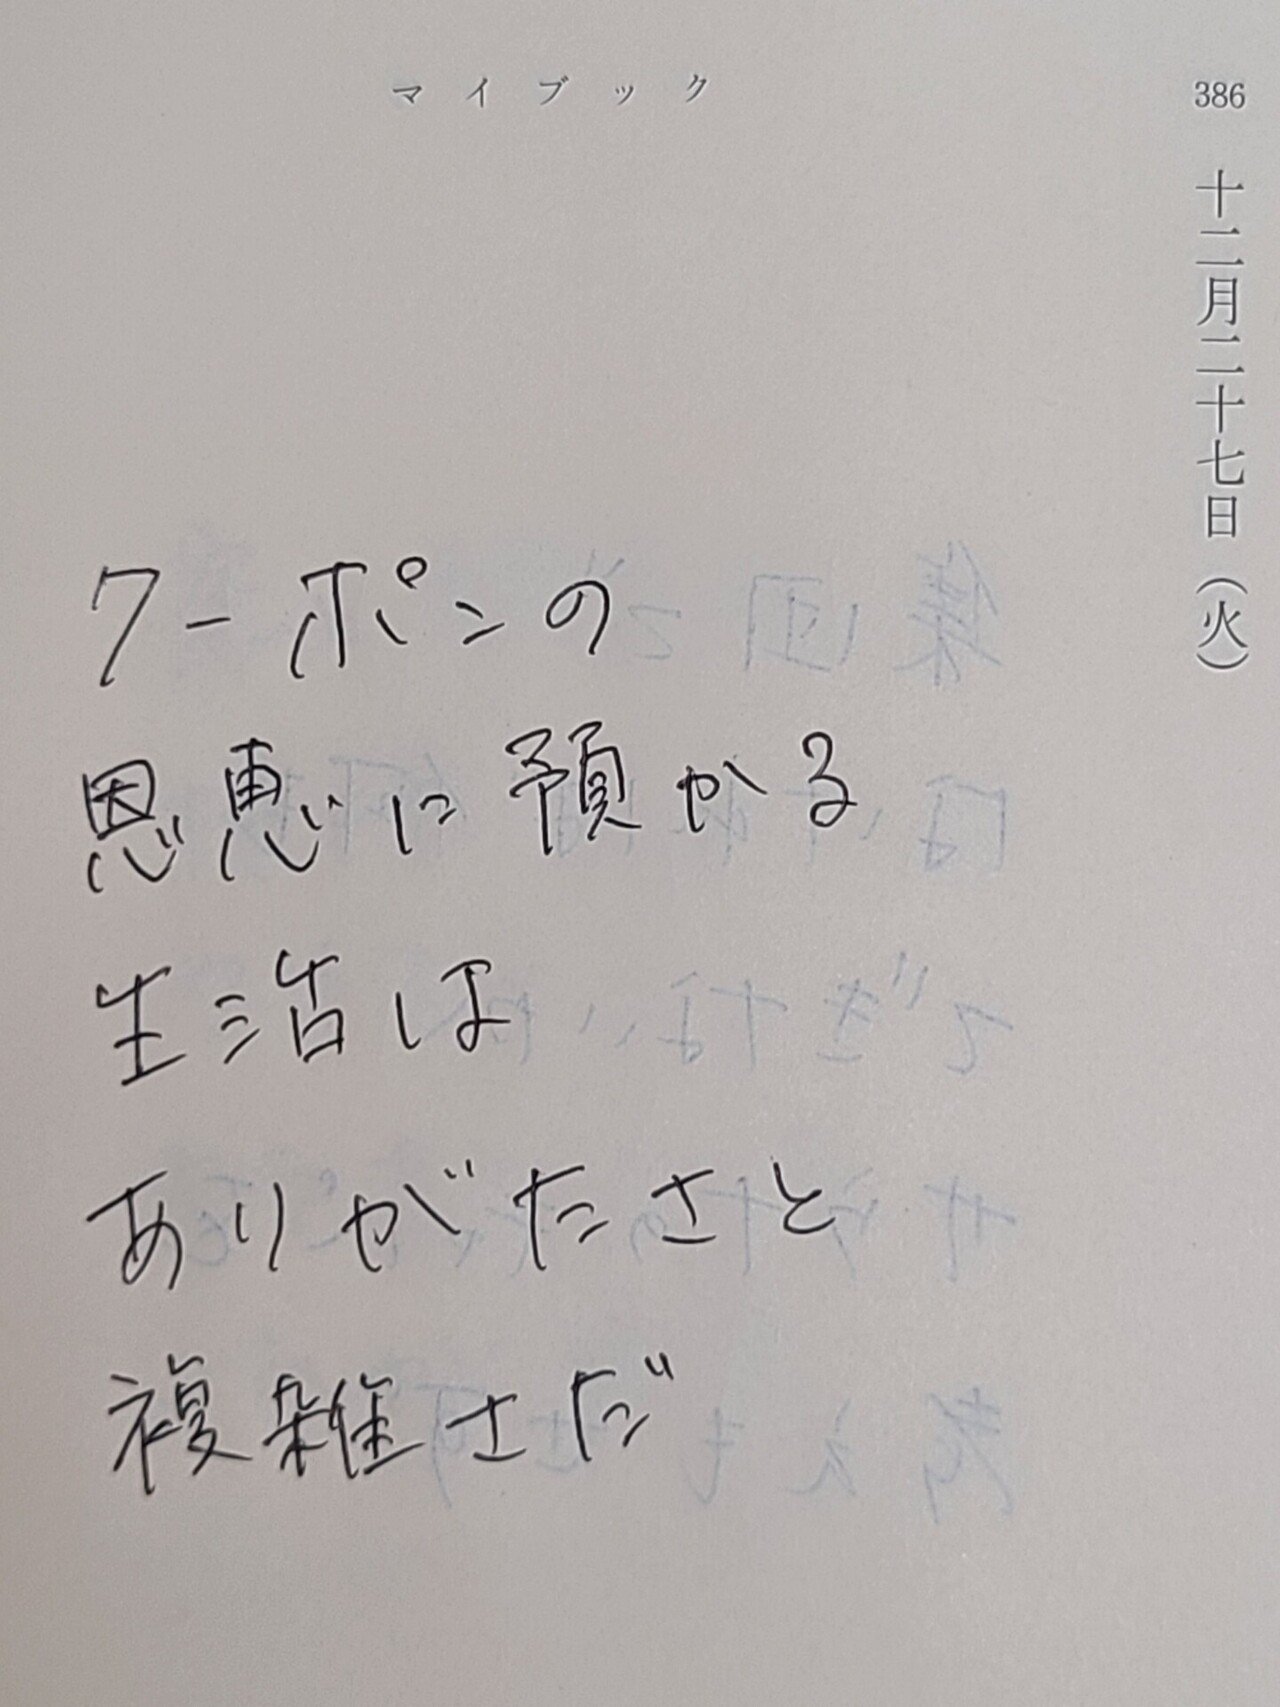 マイブック
386
十二月二十七日(火)
クーポンの
恩恵に預かる
生活は
ありがたさと
複雑さだ